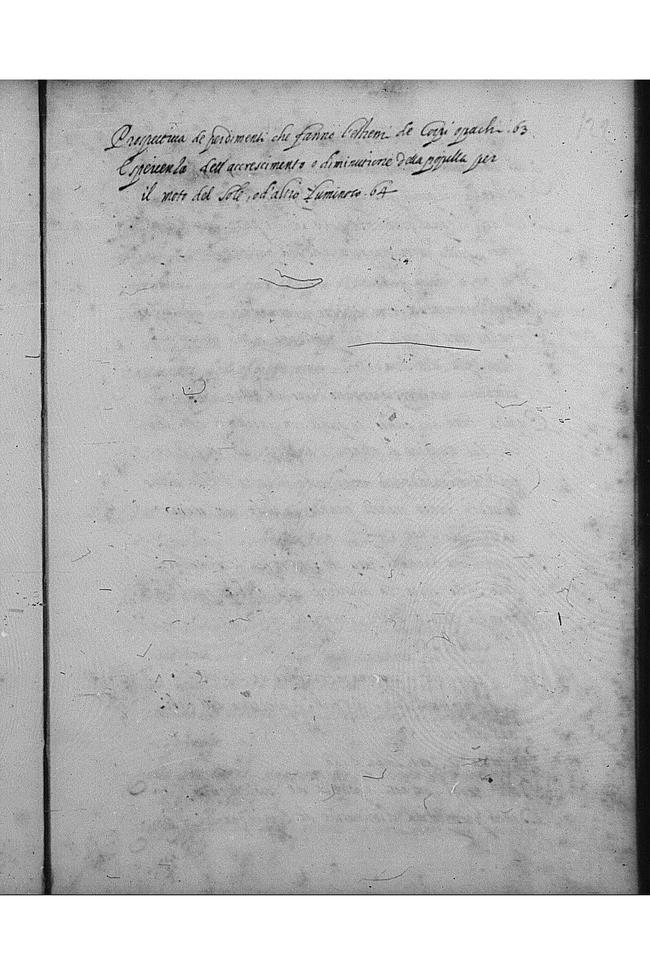 Prospettiva de perdimenti che fanno l'estremi de Corpi opachi. 63
Esperienza dell'accrescimento o diminutione della popilla per
il moto del Sole, o d'altro Luminoso. 64